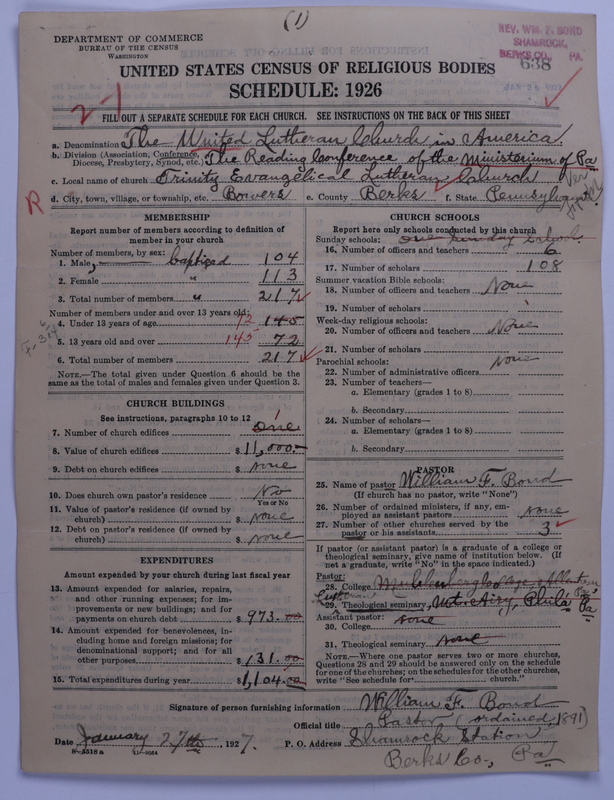 (1)
DEPARTMENT OF COMMERCE
BUREAU OF THE CENSUS
WASHINGTON
REV. WM. F. BOND
SHAMROCK,
BERKS CO., PA.
638
UNITED STATES CENSUS OF RELIGIOUS BODIES
SCHEDULE: 1926
2-1
FILL OUT A SEPARATE SCHEDULE FOR EACH CHURCH. SEE INSTRUCTIONS ON THE BACK OF THIS SHEET
a. Denomination The United Lutheran Church in America
b. Division (Association, Conference, Diocese, Presbytery, Synod, etc.) The Reading Conference of the Ministerium of Pa
c. Local name of church Trinity Evangelical Lutheran Church
d. City, town, village, or township, etc. Bowers e. County Berks f. State Pennsylvania
R
MEMBERSHIP
Report number of members according to definition of member in your church
Number of members, by sex:
1. Male, baptized 104
2. Female " 113
3. Total number of members " 217
Number of members under and over 13 years old:
4. Under 13 years of age 72 145
5. 13 years old and over 145 72
6. Total number of members 217
NOTE.—The total given under Question 6 should be the same as the total of males and females given under Question 3.
CHURCH BUILDINGS
See instructions, paragraphs 10 to 12
7. Number of church edifices one 1
8. Value of church edifices $ 11,000.-
9. Debt on church edifices $ none
10. Does church own pastor's residence No
Yes or No
11. Value of pastor's residence (if owned by church) $ none
12. Debt on pastor's residence (if owned by church) $ none
EXPENDITURES
Amount expended by your church during last fiscal year
13. Amount expended for salaries, repairs, and other running expenses; for improvements or new buildings; and for payments on church debt $ 973.00
14. Amount expended for benevolences, including home and foreign missions; for denominational support; and for all other purposes $ 131.00
15. Total expenditures during year $ 1,104.00
CHURCH SCHOOLS
Report here only schools conducted by this church
Sunday schools: one Sunday School
16. Number of officers and teachers 6
17. Number of scholars 108
Summer vacation Bible schools:
18. Number of officers and teachers None
19. Number of scholars
Week-day religious schools:
20. Number of officers and teachers None
21. Number of scholars
Parochial schools: None
22. Number of administrative officers
23. Number of teachers—
a. Elementary (grades 1 to 8)
b. Secondary
24. Number of scholars—
a. Elementary (grades 1 to 8)
b. Secondary
PASTOR
25. Name of pastor William F. Bond
(If church has no pastor, write "None")
26. Number of ordained ministers, if any, employed as assistant pastors None
27. Number of other churches served by the pastor or his assistants 3
If pastor (or assistant pastor) is a graduate of a college or theological seminary, give name of institution below. (If not a graduate, write "No" in the space indicated.)
Pastor:
28. College Muhlenberg College, Allentown, Pa
29. Theological seminary, Mt. Airy, Phila Pa
Assistant pastor:
30. College none
31. Theological seminary none
NOTE.—Where one pastor serves two or more churches, Questions 28 and 29 should be answered only on the schedule for one of the churches; on the schedules for the other churches, write "See schedule for church."
Signature of person furnishing information William F. Bond
Official title Pastor (ordained, 1891)
Date January 27th, 1927. P. O. Address Shamrock Station
Berks Co., Pa